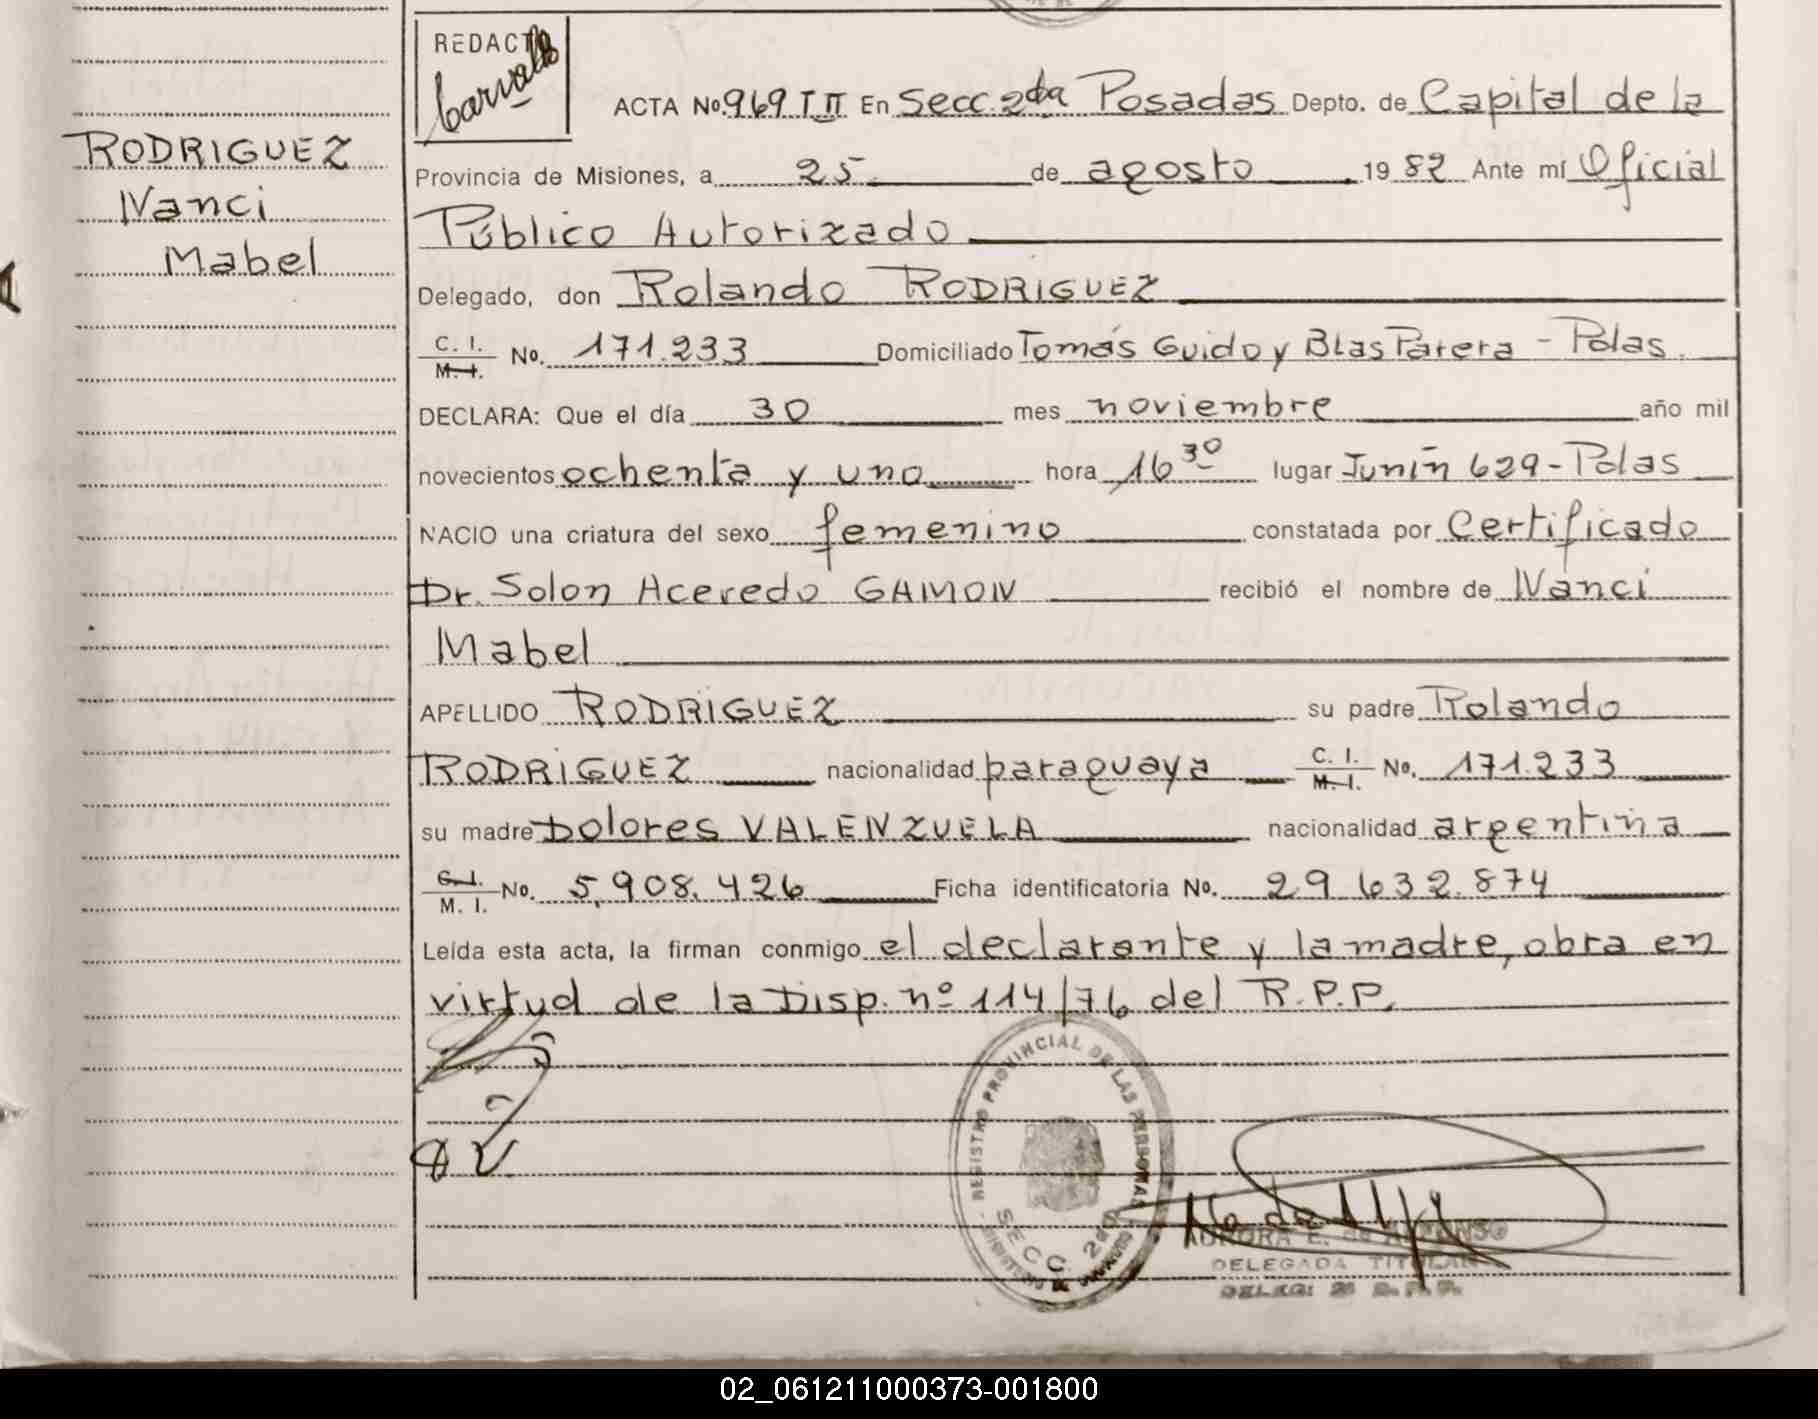 RODRIGUEZ
Nanci
Mabel
REDACTO
Carvallo
ACTA No. 969 T II En Secc. 2da Posadas Depto. de Capital de la
Provincia de Misiones, a 25 de agosto 1982 Ante mí Oficial
Público Autorizado
Delegado, don Rolando RODRIGUEZ
C. I.
M. I. No. 171.233 Domiciliado Tomás Guido y Blas Parera - Pdas.
DECLARA: Que el día 30 mes noviembre año mil
novecientos ochenta y uno hora 16 30 lugar Junín 629 - Pdas
NACIO una criatura del sexo femenino constatada por Certificado
Dr. Solon Acevedo GAMON recibió el nombre de Nanci
Mabel
APELLIDO RODRIGUEZ su padre Rolando
RODRIGUEZ nacionalidad paraguaya C. I.
M. I. No. 171.233
su madre Dolores VALENZUELA nacionalidad argentina
C. I.
M. I. No. 5.908.426 Ficha identificatoria No. 29.632.874
Leída esta acta, la firman conmigo el declarante y la madre, obra en
virtud de la Disp. nº 114/76 del R.P.P.
REGISTRO PROVINCIAL DE LAS PERSONAS
SECC. 2da
AURORA E. de ALFONSO
DELEGADA TITULAR
02_061211000373-001800